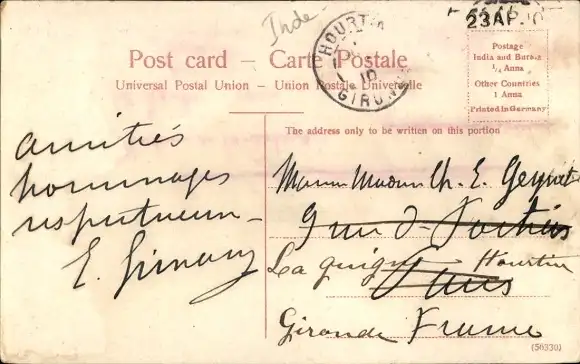 Inde
HOURTIN
10
GIRONDE
23 AP. 10
Post card – Carte Postale
Universal Postal Union – Union Postale Universelle
Postage
India and Burma
1/4 Anna
Other Countries
1 Anna
Printed in Germany
The address only to be written on this portion
amitiés
hommages
respectueux
E.
Ch. E.
9 rue
Hourtin
Paris
Gironde France
(50330)